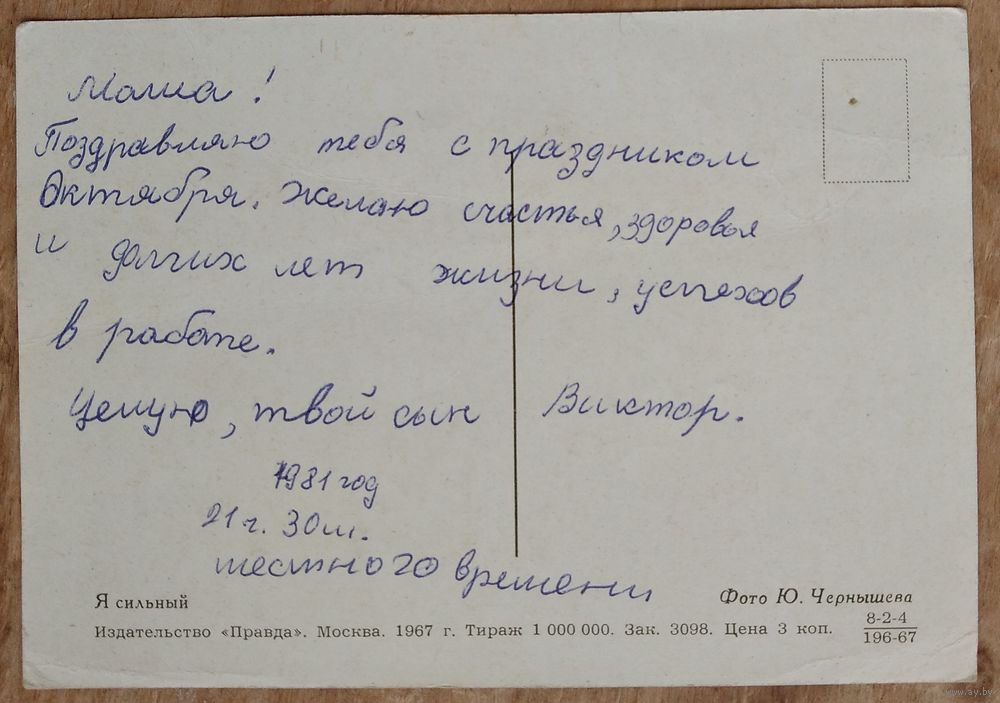 Мама!
Поздравляю тебя с праздником
Октября. Желаю счастья, здоровья
и долгих лет жизни, успехов
в работе.
Целую, твой сын Виктор.
1981 год
21 ч. 30 м.
местного времени
Я сильный
Фото Ю. Чернышева
Издательство «Правда». Москва. 1967 г. Тираж 1 000 000. Зак. 3098. Цена 3 коп.
8-2-4
196-67
www.ay.by